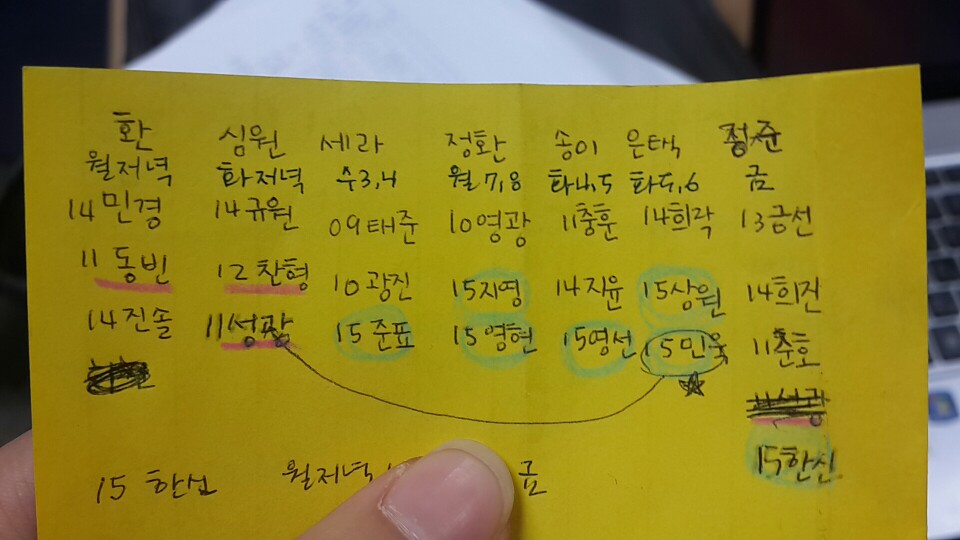 환 심원 세라 정환 송이 은택 정준
월저녁 화저녁 수3,4 월7,8 화4,5 화5,6 금
14민경 14규원 09태준 10영광 11충훈 14희락 13금선
11동빈 12찬형 10광진 15지영 14지윤 15상원 14희진
14진솔 11성광 15준표 15영현 15영선 15민욱 11준호
15한신
15 한 월저녁